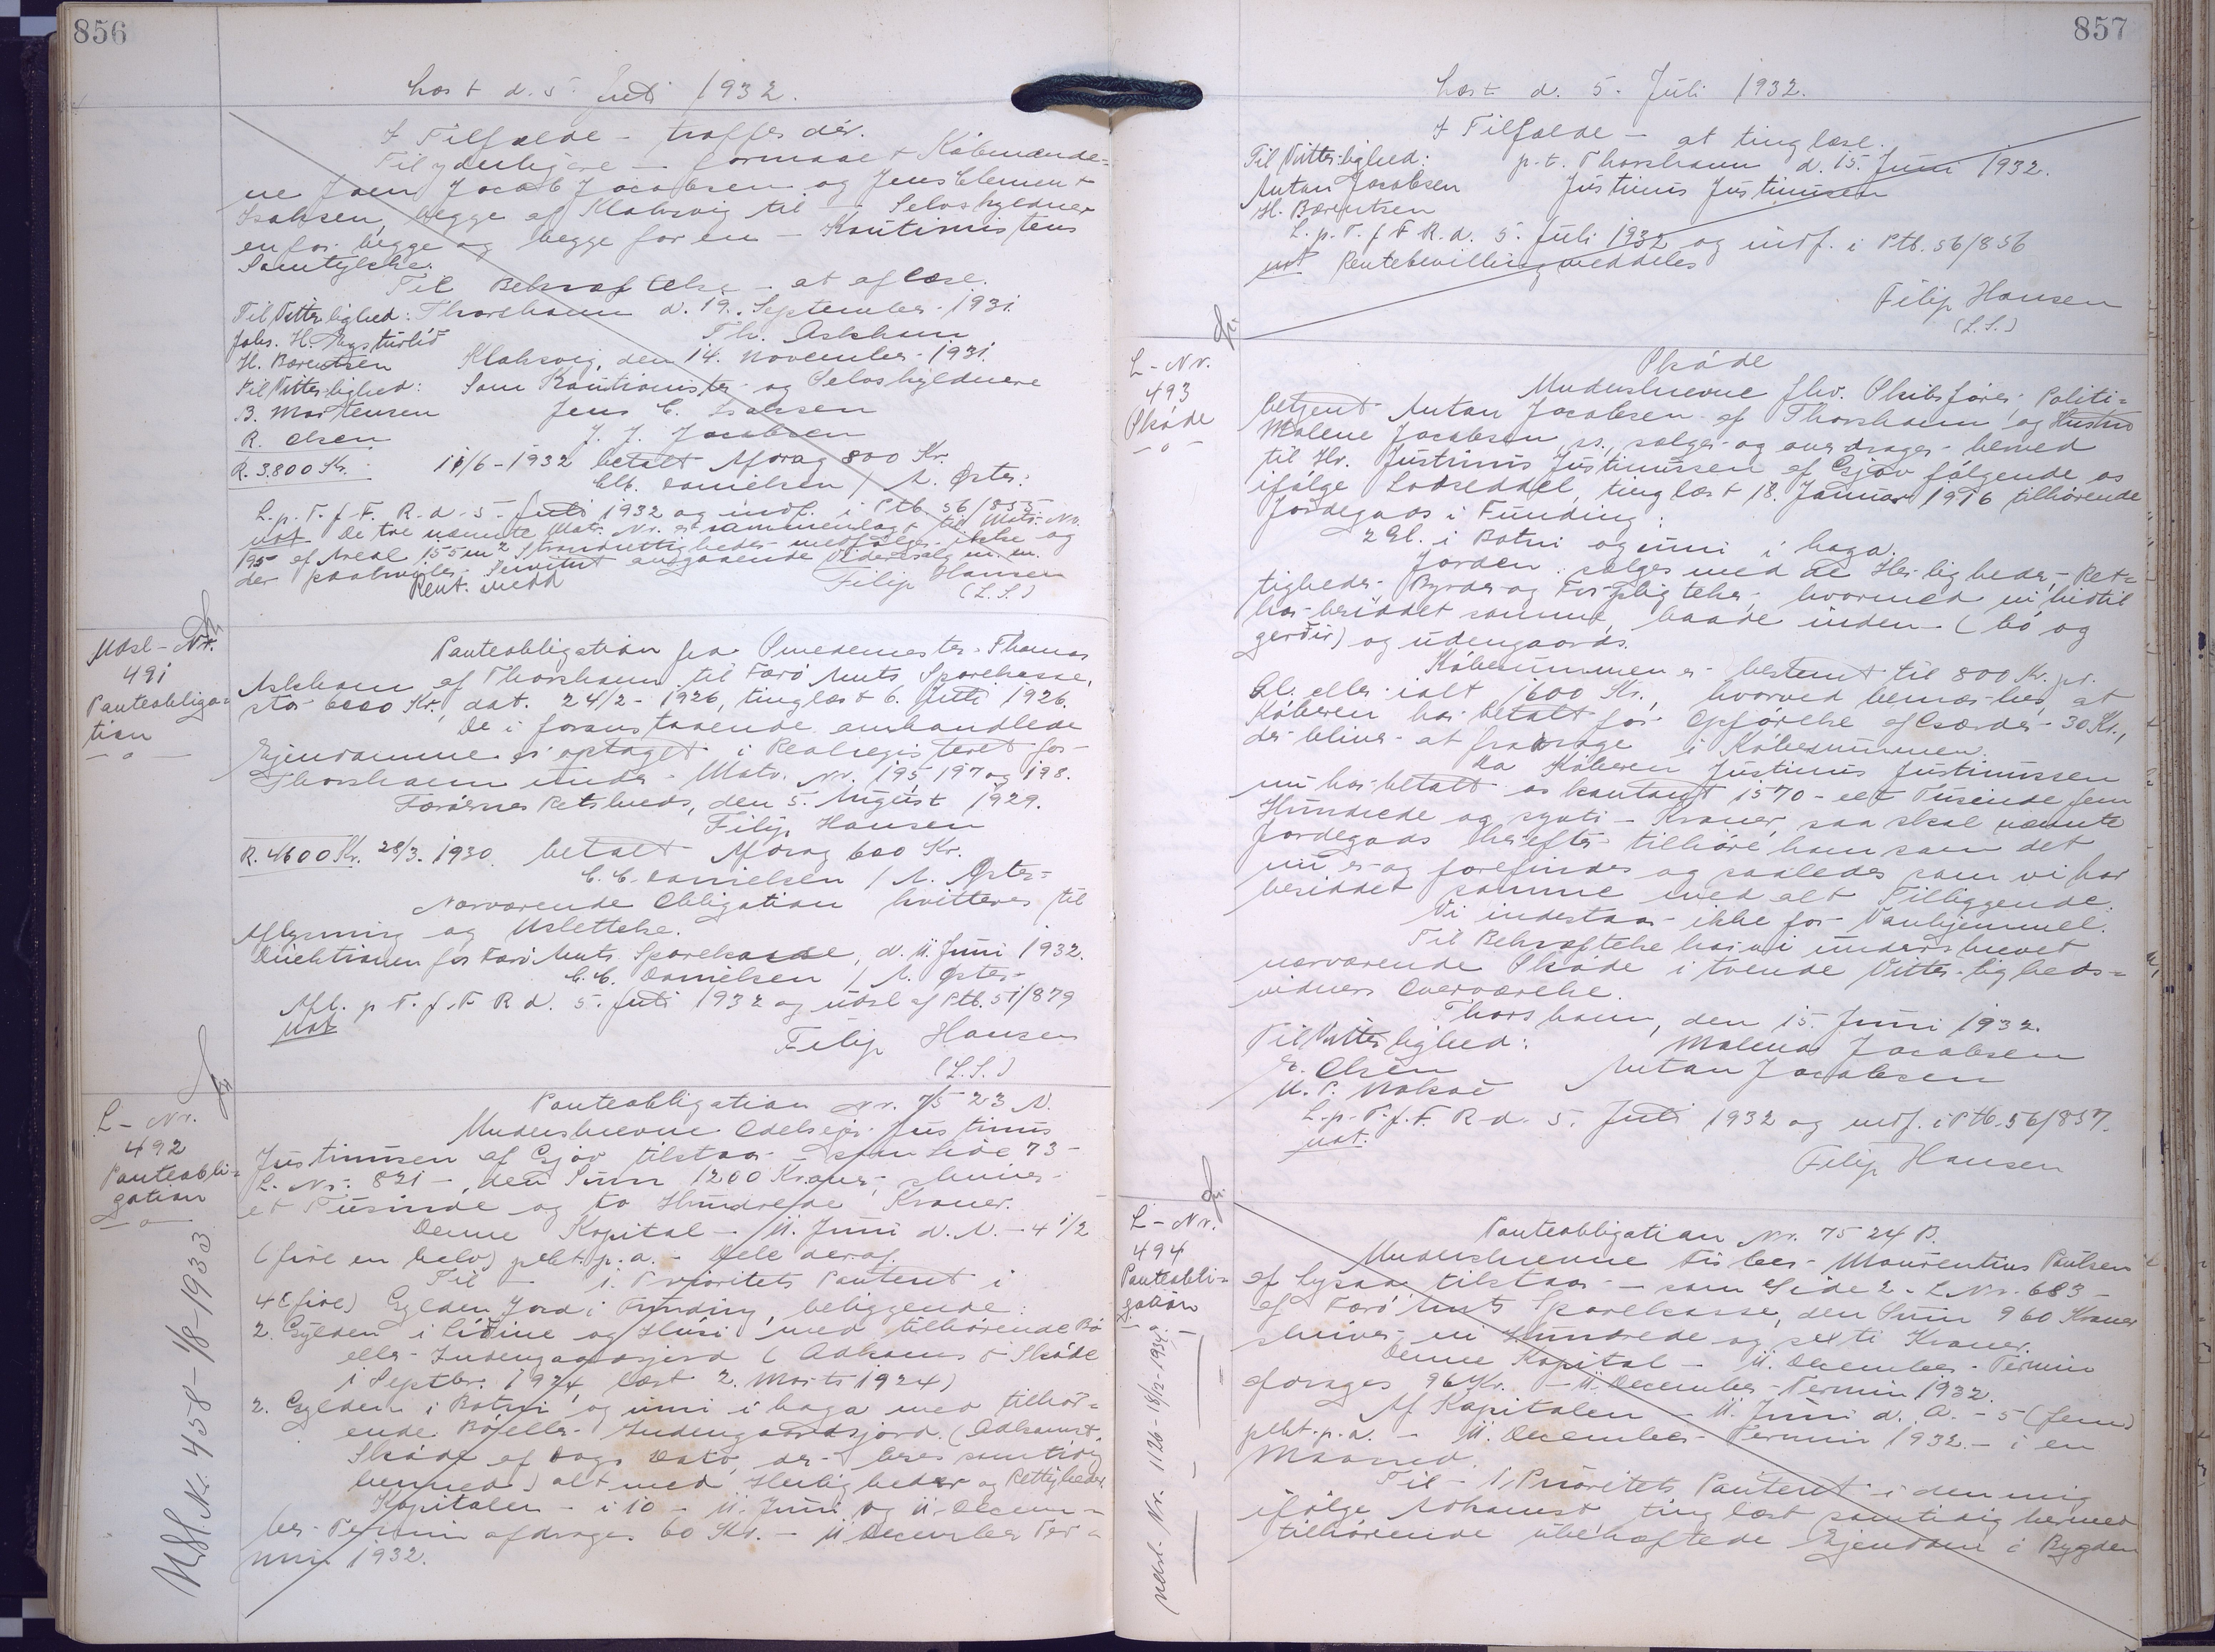 856
Læst d. 5. Juli 1932.
I Tilfælde - træffes dér.
Til yderligere - formaaet Købmænde-
ne Joen Jacob Jacobsen og Jens Clement
Isaksen, begge af Klaksvig til - Selvskyldner
en for begge og begge for en - Kautionistens
Samtykke.
Til Bekræftelse - at aflæse.
Til Vitterlighed: Thorshavn d. 19. September 1931.
Johs. H. Thysturlid Th. Askham
H. Bærentsen Klaksvig, den 14. November 1931.
Til Vitterlighed: Som Kautionister og Selvskyldnere
B. Mortensen Jens C. Isaksen
R. Olsen J. J. Jacobsen
R. 3.800 Kr. 11/6-1932 betalt Afdrag 800 Kr.
Chr. Danielsen / A. Øster:
L. p. T. f. F. R. d. 5. Juli 1932 og indf. i Ptb. 56/855
not De tre nævnte Matr. Nr. er sammenlagt til Matr. No.
195 af Areal 155 m2 Strandrettigheder medfølger ikke og
der paahviler Servitut angaaende Videresalg m. m.
Rent. medd Filip Hansen
(L.S.)
Udsl - Nr.
491
Panteobliga-
tion
Panteobligation fra Smedemester Thomas
Askham af Thorshavn til Færø Amts Sparekasse,
stor 6000 Kr., dat. 24/2 - 1926, tinglæst 6. Juli 1926.
De i foranstaaende omhandlede
Ejendomme er optaget i Realregisteret for
Thorshavn under Matr. Nr. 195, 197 og 198.
Færøernes Retskreds, den 5. August 1929.
Filip Hansen
R. 4600 Kr. 28/3. 1930. betalt Afdrag 600 Kr.
C. C. Danielsen / A. Øster-
Nærværende Obligation kvitteres til
Aflysning og Udslettelse.
Direktionen for Færø Amts Sparekasse, d. 11. Juni 1932.
C. C. Danielsen / A. Øster-
Afl. p. T. f. F. R d. 5. Juli 1932 og udsl af Ptb. 51/879
not
Filip Hansen
(L.S.)
L - Nr.
492
Panteobli-
gation
Udsl. Nr. 458 - 1/8 - 1933
Panteobligation Nr. 7523 A.
Undershrevne Odelsejer Justinus
Justinussen af Gjov tilstaar - som Side 73 -
L. Nr. 821 - , den Sum 1200 Kroner, skriver
et Tusinde og to Hundrede Kroner.
Denne Kapital - 11. Juni d. A. - 4 1/2
(fire en halv) pCt. p. a. - hele deraf.
Til - 1. Prioritets Panteret i
4 (fire) Gylden Jord i Funding, beliggende:
2. Gylden i Lidine og Húsi med tilhørende Bø
eller Indengaardsjord (Adkomst Skøde
i Septbr. 1924 læst 2. Marts 1924)
2. Gylden i Botni og inni i haga med tilhør-
ende Bø eller Indengaardsjord. (Adkomst.
Skøde af Dags Dato, der læses samtidig
hermed) alt med Herligheder og Rettigheder.
Kapitalen - i 10 - 11. Juni og 11. Decem-
ber Termin afdrages 60 Kr. - 11 December Ter-
min 1932.
857
Læst d. 5. Juli 1932.
I Tilfælde - at tinglæse.
Til Vitterlighed: p.t. Thorshavn d. 15. Juni 1932.
Anton Jacobsen Justinus Justinussen
H. Bærentsen
L. p. T. f. F. R. d. 5. Juli 1932 og indf. i Ptb. 56/856
not Rentebevilling meddeles
Filip Hansen
(L.S.)
L - Nr.
493
Skøde
- o -
Skøde
Underskrevne fhv. Skibsfører, Politi-
betjent Anton Jacobsen af Thorshavn og Hustru
Malene Jacobsen, sælger og overdrager herved
til Hr. Justinus Justinussen af Gjov følgende os
ifølge Lodseddel, tinglæst 18. Januar 1916 tilhørende
Jordegods i Funding:
2 Gl. i Botni og inni i haga.
Jorden sælges med de Herligheder, Ret-
tigheder Byrder og Forpligtelser, hvormed vi hidtil
har besiddet samme, baade inden - (bø og
gerðir) og udengaards.
Købesummen er bestemt til 800 Kr. pr.
Gl. eller ialt 1600 Kr., hvorved bemærkes, at
Køberen har betalt for Opførelse af Gærder 30 Kr.,
der bliver at fradrage i Købesummen.
Da Køberen Justinus Justinussen
nu har betalt os kontant 1570 - eet Tusinde fem
Hundrede og syvti - Kroner, saa skal nævnte
Jordegods herefter tilhøre ham som det
nu er og forefindes og saaledes som vi har
besiddet samme med alt Tilliggende.
Vi indestaar ikke for Vanhjemmel.
Til Bekræftelse har vi underskrevet
nærværende Skøde i tvende Vitterligheds-
vidners Overværelse.
Thorshavn, den 15. Juni 1932.
Til Vitterlighed: Malena Jacobsen
E. Olsen Anton Jacobsen
L. p. T. f. F. R d. 5. Juli 1932 og indf. i Ptb. 56/857.
not.
Filip Hansen
L - Nr.
494
Panteobli-
gation
- o -
Udsl. Nr. 1120 - 18/12 - 1934
Panteobligation Nr. 7524 B.
Underskrevne Fisker Maurentius Poulsen
af Lysaa tilstaar - som Side 2 - L. Nr. 683 -
af Færø Amts Sparekasse, den Sum 960 Kroner
skriver ni Hundrede og sexti Kroner.
Denne Kapital - 11. December Termin
afdrages 96 Kr. - 11. December Termin 1932.
Af Kapitalen - 11. Juni d. A. - 5 (fem)
pCt. p. a. - 11. December Termin 1932 - i en
Maaned.
Til - 1. Prioritets Panteret i den mig
ifølge Adkomst tinglæst samtidig hermed
tilhørende ubehæftede Ejendom i Bygden